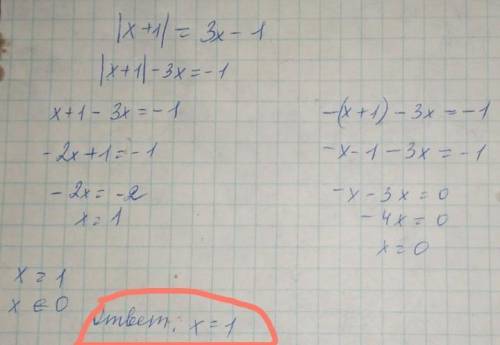 |x+1| = 3x - 1
|x+1| - 3x = -1
x+1 - 3x = -1
-2x+1 = -1
-2x = -2
x = 1
-(x+1) - 3x = -1
-x - 1 - 3x = -1
-x - 3x = 0
-4x = 0
x = 0
x = 1
x ∈ 0
Ответ: x = 1